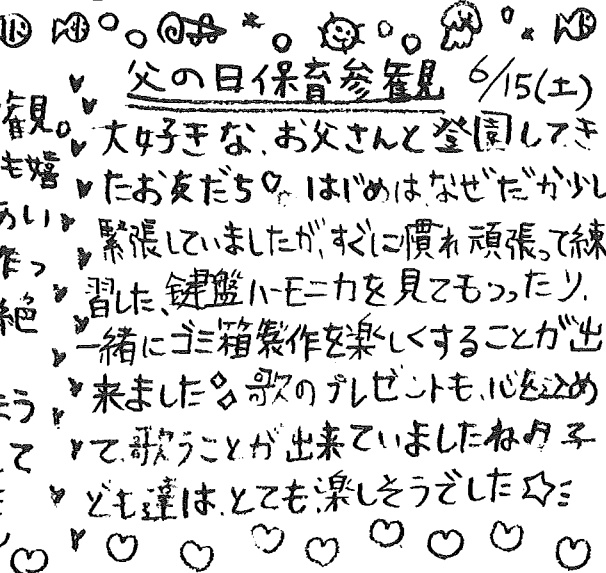 父の日保育参観 6/15(土)
大好きな、お父さんと登園してき
たお友だち♡。はじめは、なぜだか少し
緊張していましたが、すぐに慣れ頑張って練
習した、鍵盤ハーモニカを見てもらったり、
一緒にゴミ箱製作を楽しくすることが出
来ました 歌のプレゼントも、心を込め
て、歌うことが出来ていましたね♪子
ども達は、とても楽しそうでした☆
観。
も嬉
あい
作っ
絶
て